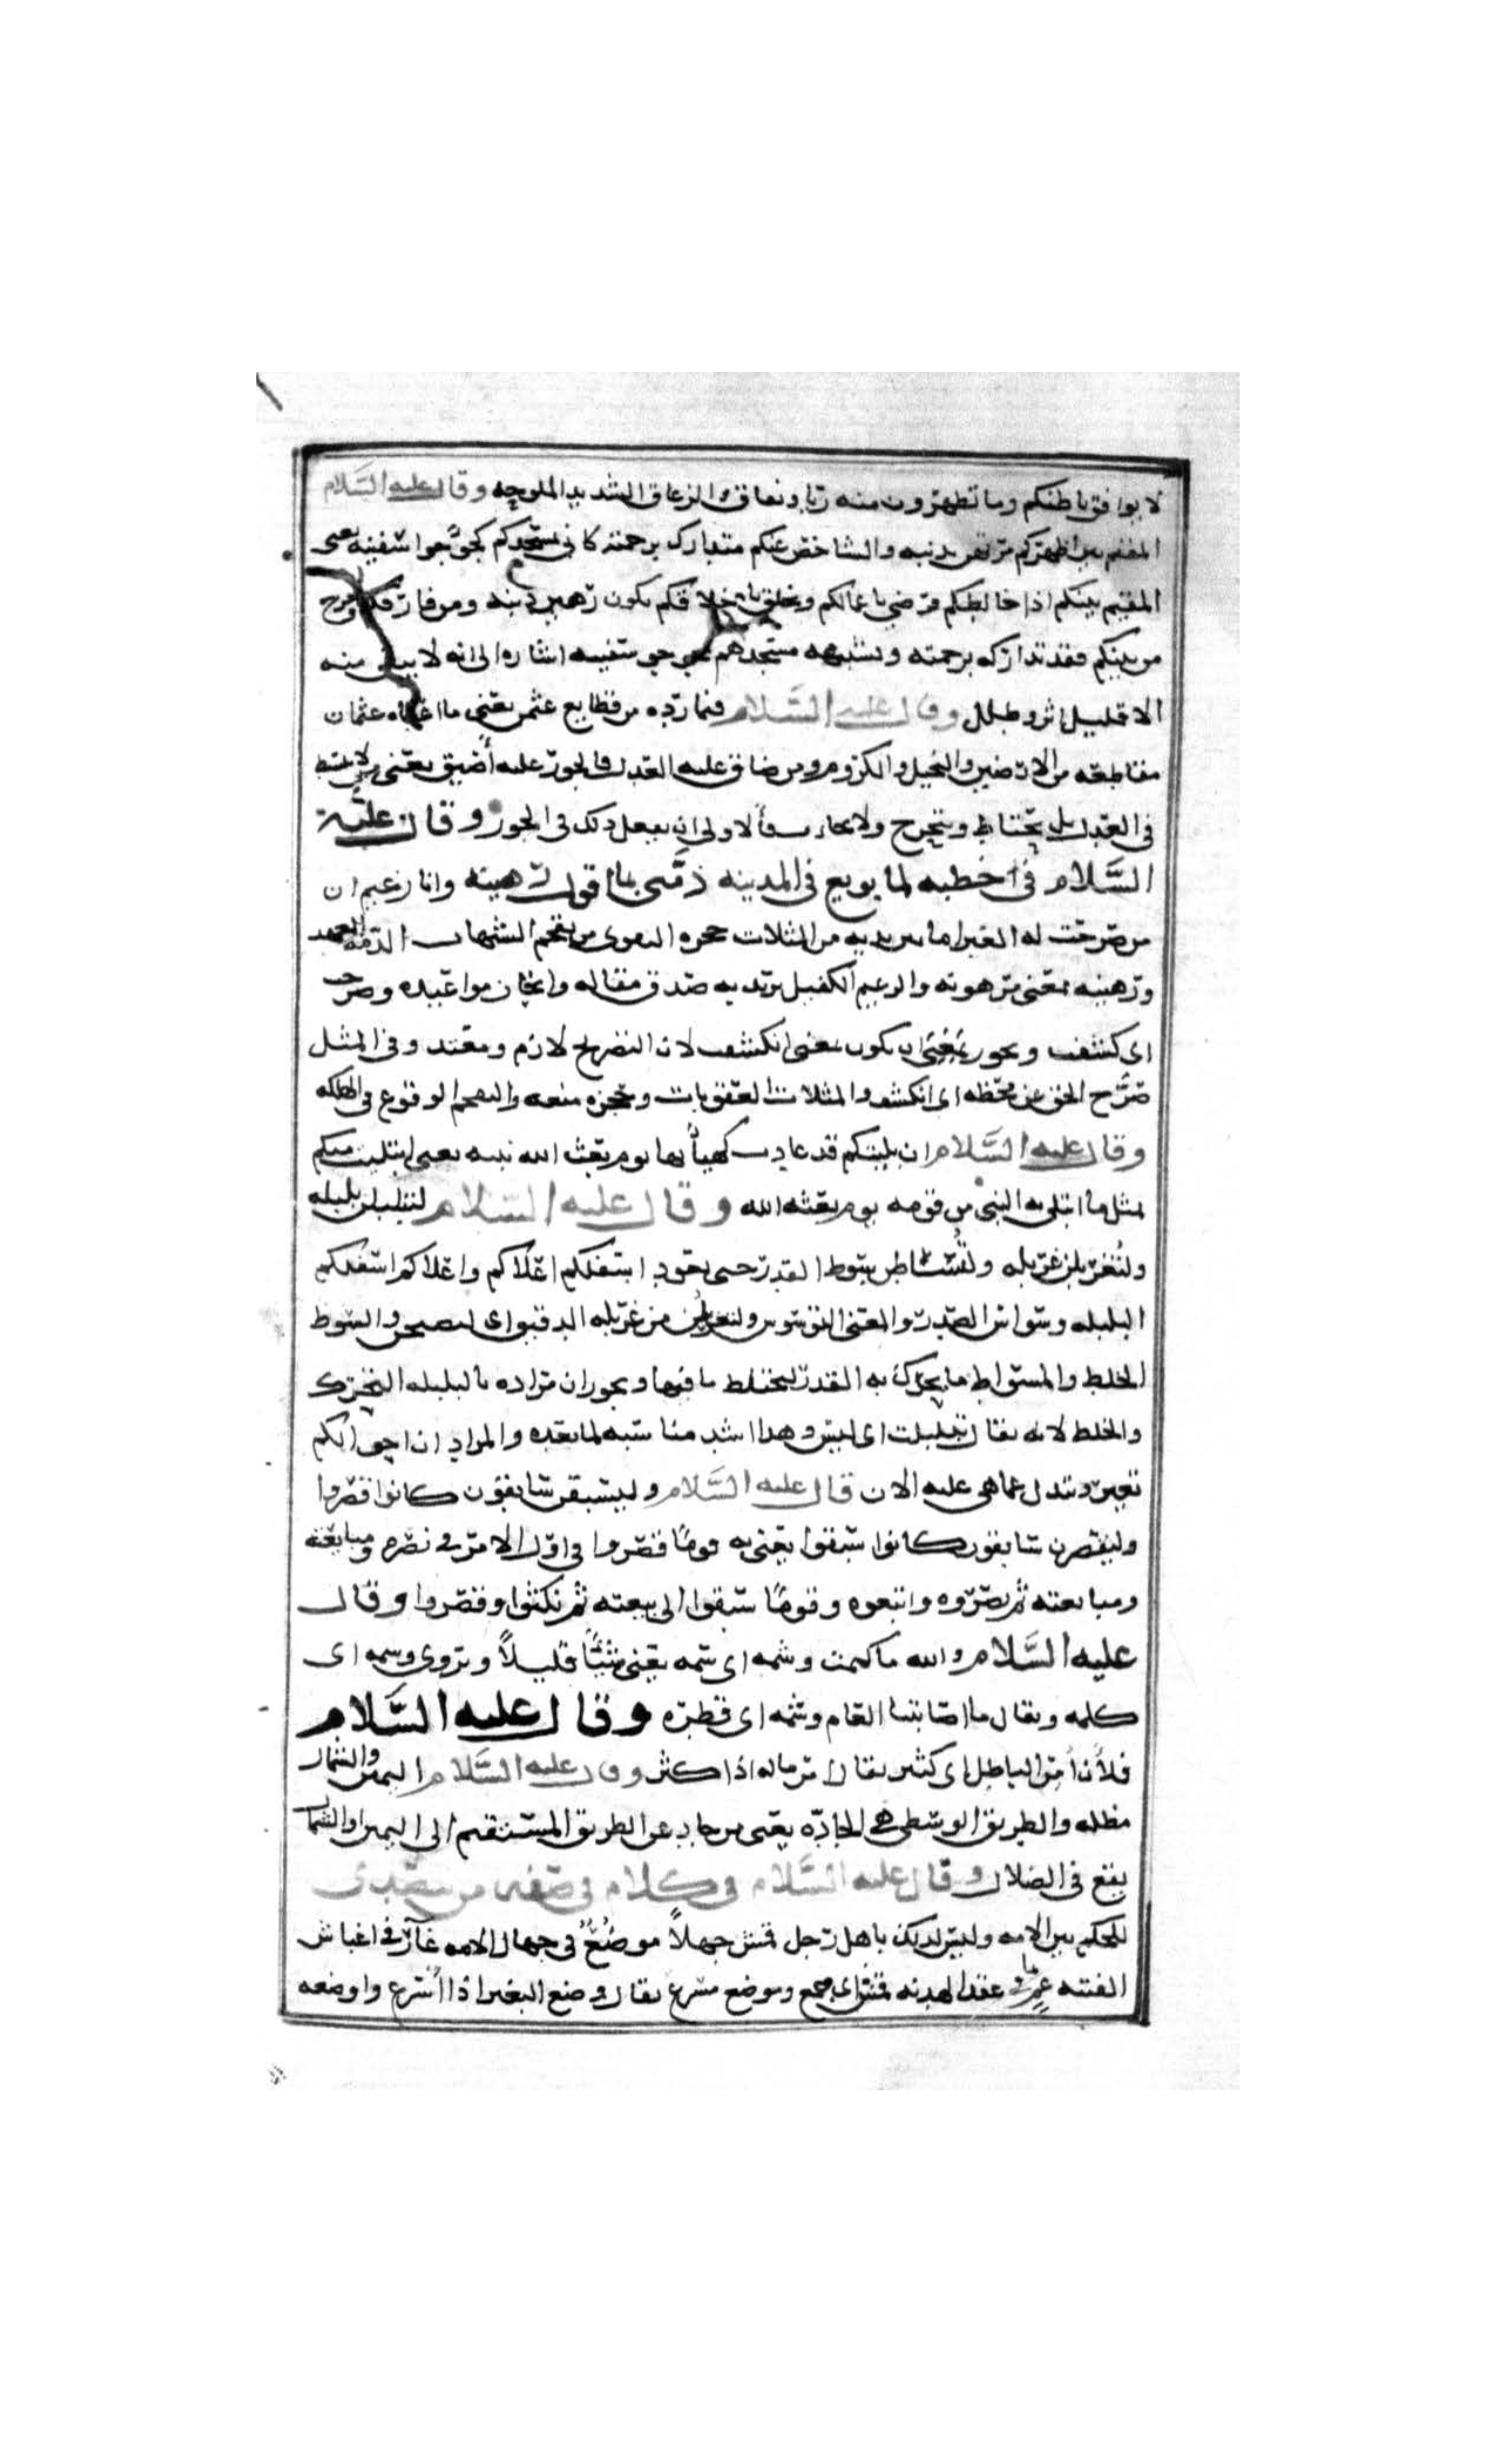 لا يوافق باطنكم وما تظهرون منه ريا ونفاق والزعاق الشديد الملوحه وقال عليه السلام
المقيم بين اظهركم مرتهن بذنبه والشاخص عنكم متدارك برحمة كاني بمسجدكم كجؤجؤ سفينه يعني
المقيم بينكم اذا خالطكم ورضي باعمالكم وتخلق باخلاقكم يكون رهين ذنبه ومن فارقكم وخرج
من بينكم فقد تداركه برحمته وتشبيهه مسجدهم بجؤجؤ سفينه اشاره الى انه لا يبقى منه
الا قليل اثر وطلل وقال عليه السلام فيما رده من قطايع عثمن يعني ما اعطاه عثمان
مقاطعه من الارضين والنخيل والكروم ومن ضاق عليه العدل فالجور عليه أضيق يعني من لا ينبسط
في العدل بل يحتاط ويتحرج ولا فالاولى ان يفعل ذلك في الجور وقال عليه
السلام في خطبه لما بويع في المدينه ذمتي بما اقول رهينه وانا زعيم ان
من صرحت له العبر اما بين يديه من المثلات حجزه التقوى من تقحم الشبهات الذمه العهد
ورهينه بمعنى مرهونه والزعيم الكفيل يريد به صدق مقاله وانجاز مواعيده وصرحت
اي كشفت ويجوز ان يكون بمعنى انكشفت لان التصريح لازم ومتعد وفي المثل
صرّح الحق عن محضه اي انكشف والمثلات العقوبات وحجزه منعه والتقحم الوقوع في الهلكه
وقال عليه السلام ان بليتكم قد عادت كهيأتها يوم بعث الله نبيه يعني ابتليت منكم
بمثل ما ابتلي به النبي من قومه يوم بعثه الله وقال عليه السلام لتبلبلن بلبله
ولتغربلن غربله ولتساطن سوط القدر حتى يعود اسفلكم اعلاكم واعلاكم اسفلكم
البلبله وسواس الصدر والمعنى التوسوس ولتغربلن من غربله الدقيق اي والسوط
الخلط والمسواط ما يحرك به القدر ليختلط ما فيها ويجوز ان مراده بالبلبله التحرك
والخلط لانه يقال تبلبلت اي وهذا اشد مناسبه لما بعده والمراد ان احوالكم
تتغير وتتبدل عما هي عليه الان قال عليه السلام وليسبقن سابقون كانوا قصروا
وليقصرن سابقون كانوا سبقوا يعني به قومًا قصروا في اول الامر في نصره ومبايعته
ومبايعته ثم نصروه واتبعوه وقومًا سبقوا الى بيعته ثم نكثوا وقصروا وقال
عليه السلام والله ما كتمت وشمه اي شمه يعني شيئًا قليلاً ويروى وسمه اي
كلمه ويقال ما اصابتنا العام وشمه اي قطره وقال عليه السلام
فلأن أمر الباطل اي كثير يقال امر ماله اذا كثر وقال عليه السلام اليمين والشمال
مظله والطريق الوسطى هي الجادّه يعني من حاد عن الطريق المستقيم الى اليمين او الشمال
يقع في الضلال وقال عليه السلام في كلام في صفه من يتصدى
للحكم بين الامه وليس لذلك باهل رجل قمش جهلاً موضعٌ في جهال الامه غار في اغباش
الفتنه عمٍ بما في عقد الهدنه قمش اي جمع وموضع مسرع يقال وضع البعير اذا اسرع واوضعه